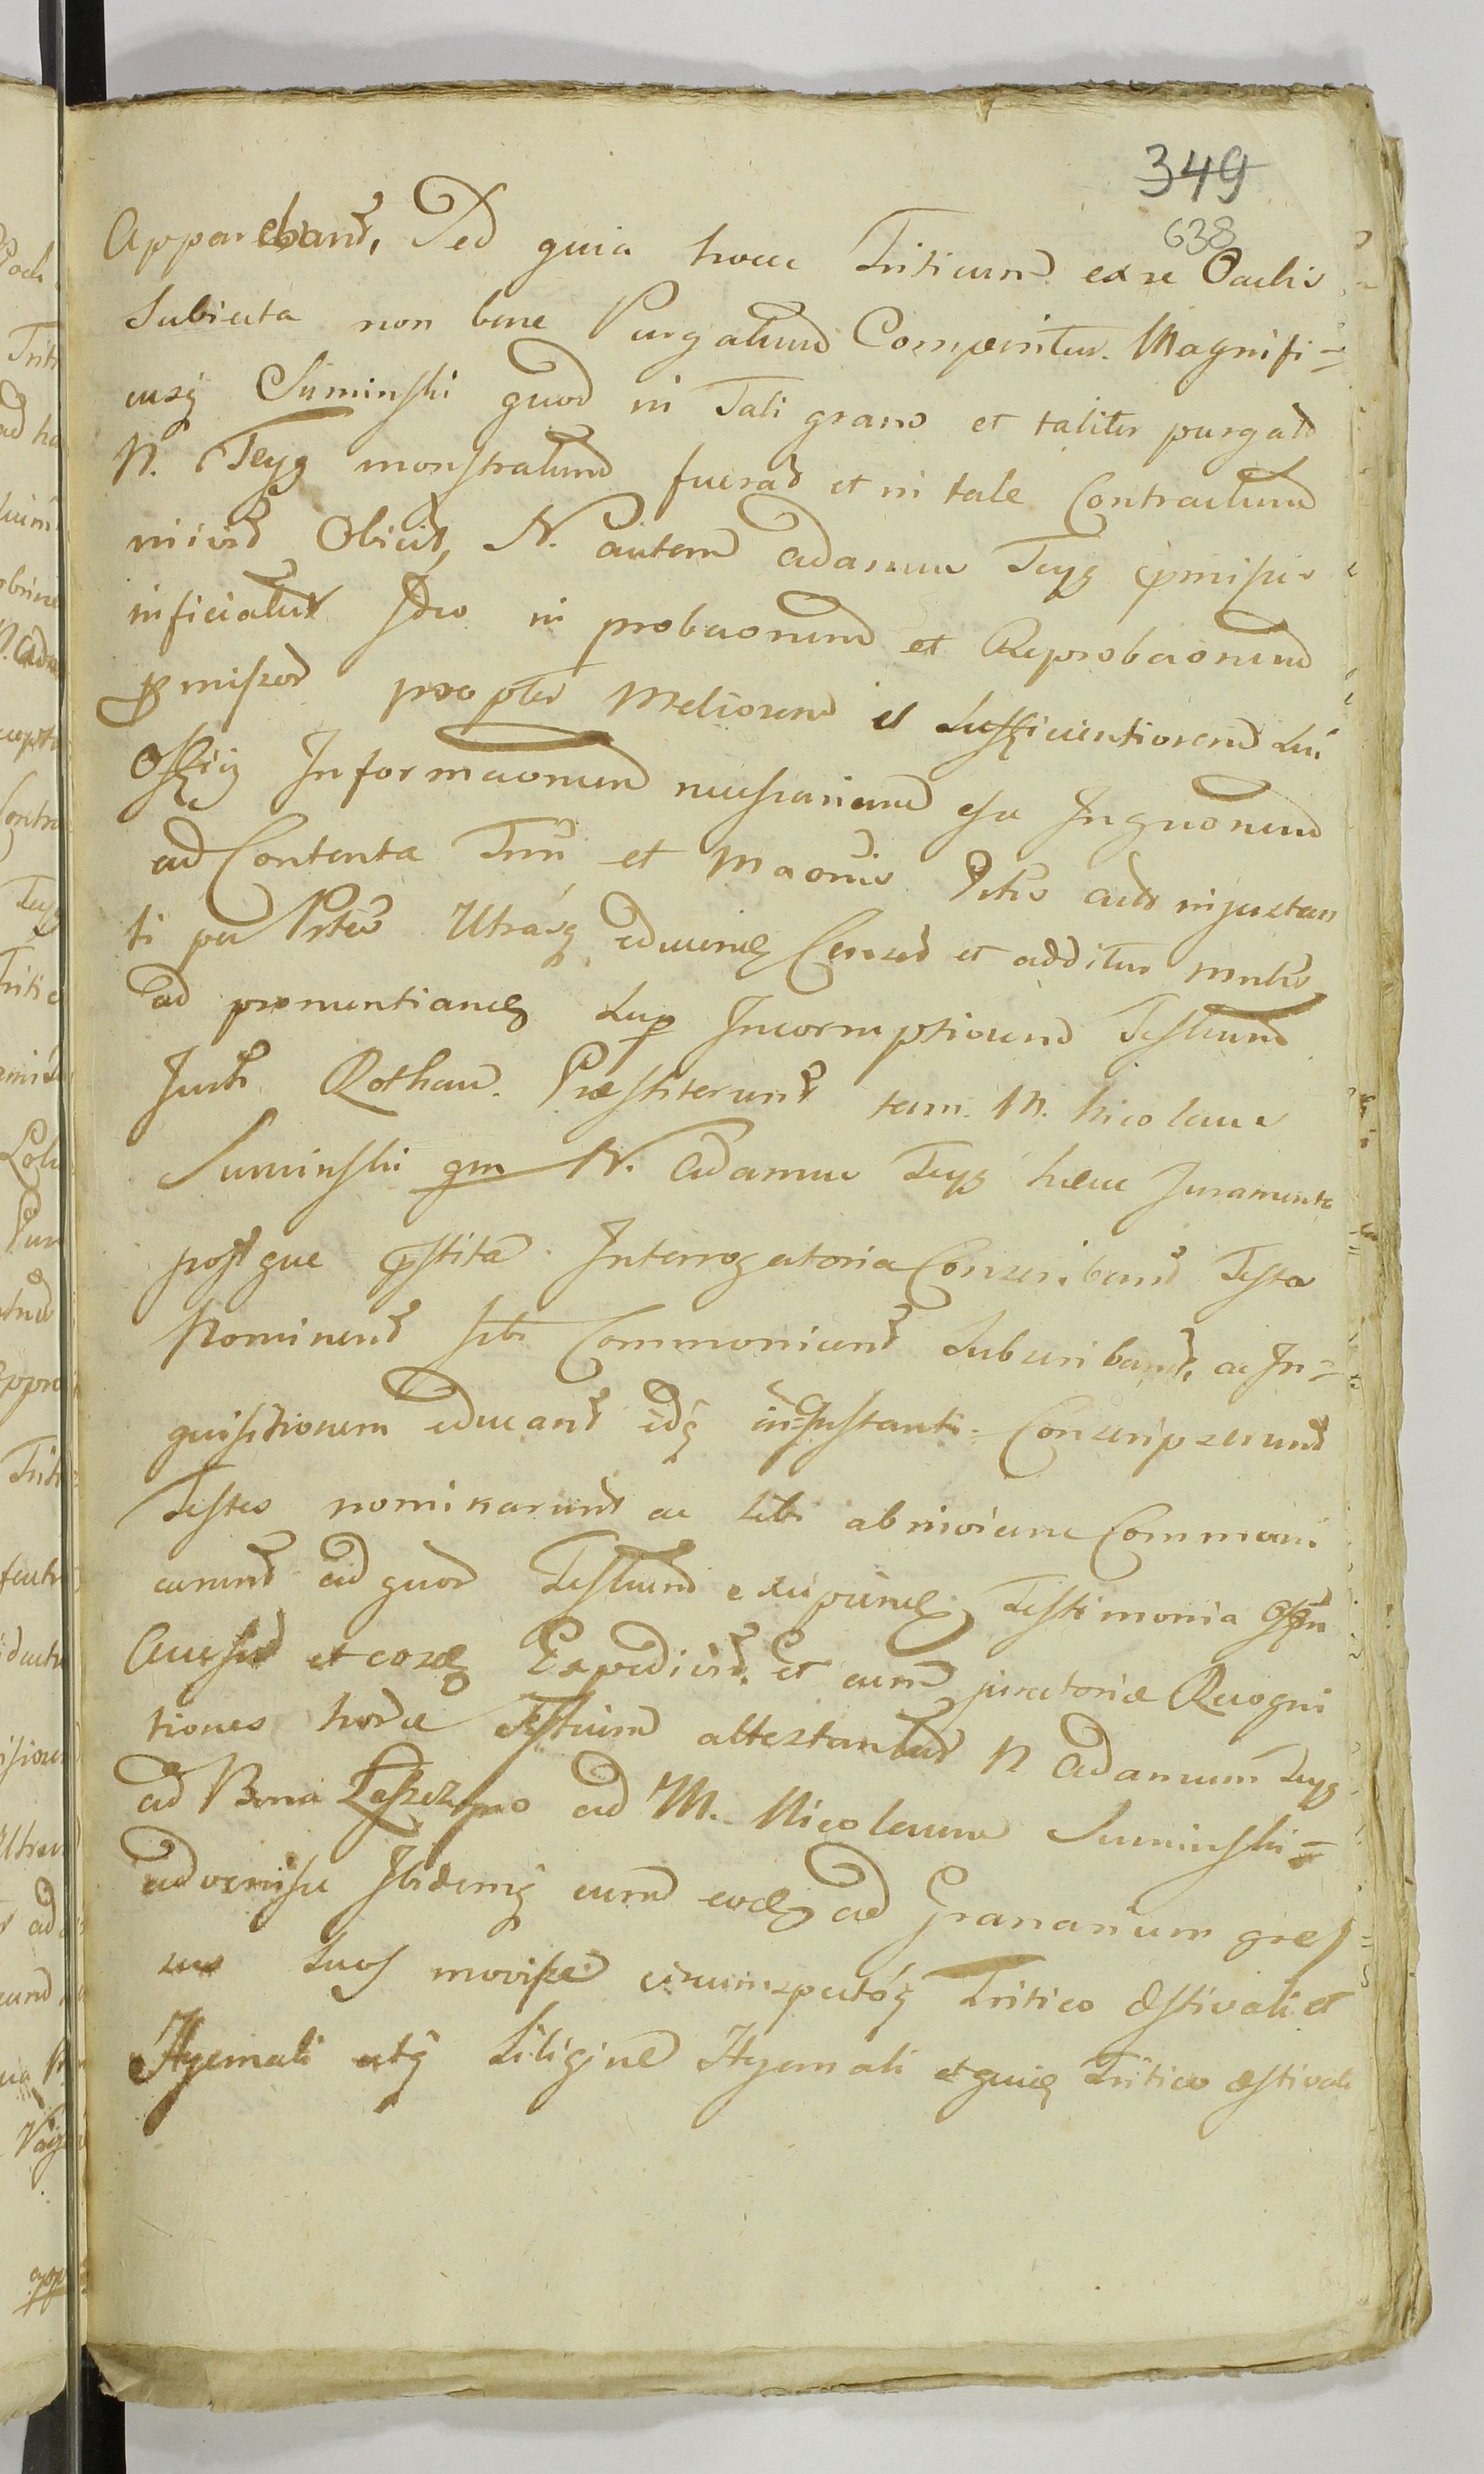 349
638
Apparebant, Sed quia hocce Triticum ex re Oculis
Subiecta non bene Purgatum Comperitur. Magnifi=
cusq Suminski quod in Tali grano et taliter purgato
N. Teyg monstratum fuerat et in tale Contractum
inivit Obicit, N. autem Adamus Teyg pmissis
inficiatur Ideo in probaonem et Reprobaonem
pmissor propter Meliorem et Sufficientiorem Sui
Officij Informaonem necessariam esse Inqnonem
ad Contenta Tm et Maonis Ptis aut injuxtan
ti per Ptes Utrasq educend Censet et additur
ad pronuntiand Sup Incorruptionem Testium
Jurta Rotham. Præstiterunt tam. M. Nicolaus
Suminski qm N. Adamus Teyg hæcce Juramenta
postque pstita Interrogatoria Conscribant Testes
Nominent sibi Communicent Subscribant, ac In=
quisitionem educant idq in Instanti. Conscripserunt
Testes nominarunt ac sibi abinvicem Communi
carunt ad quod Testium excipiend Testimonia Offm
Accessit et eosd Expedivit. Et cum juratoriæ Recogni
tiones horce Testium attestantur N Adamum Teyg
ad Bona ad M. Nicolaum Suminski=
advenisse Ibidemq cum eod ad Granarium gres=
sus Suos movisse circumspectóq Tritico Æstivali et
Hyemali atq Siligine Hyemali et quid Tritico æstivali